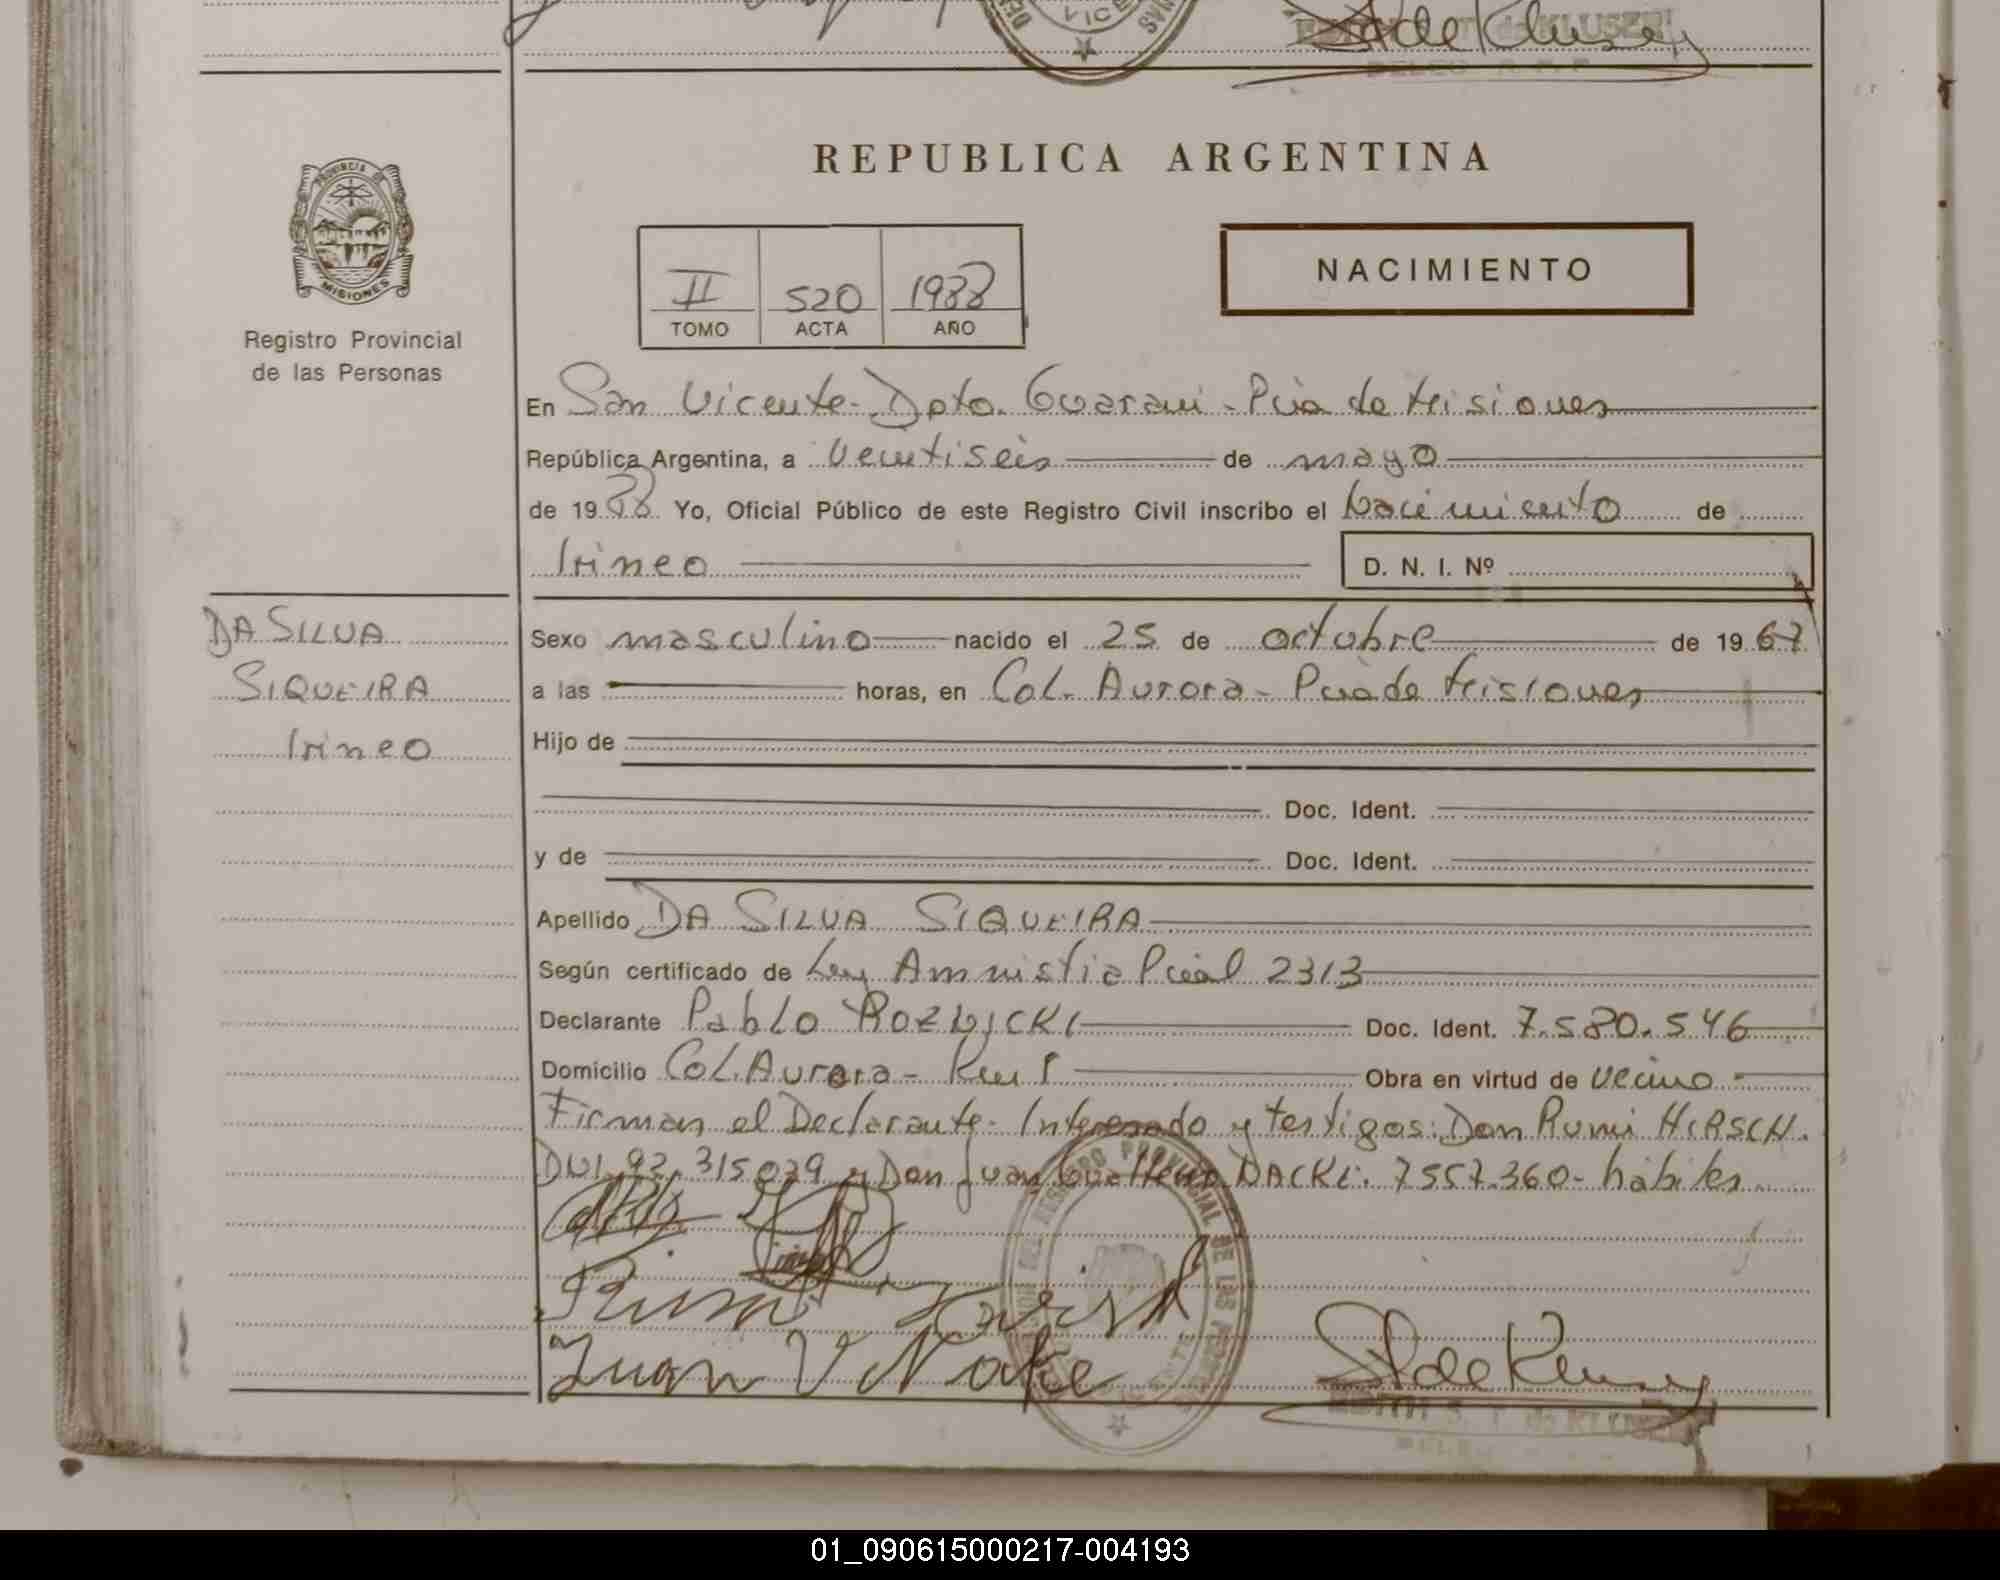 VICE
REPUBLICA ARGENTINA
PROVINCIA DE
MISIONES
Registro Provincial
de las Personas
II 520 1988
TOMO ACTA AÑO
NACIMIENTO
En San Vicente - Dpto. Guarani - Pcia de Misiones
República Argentina, a Veintiseis de mayo
de 1988 Yo, Oficial Público de este Registro Civil inscribo el Nacimiento de
Irineo D. N. I. Nº
DA SILVA
SIQUEIRA
Irineo
Sexo masculino nacido el 25 de octubre de 1967
a las horas, en Col. Aurora - Pcia de Misiones
Hijo de
Doc. Ident.
y de Doc. Ident.
Apellido DA SILVA SIQUEIRA
Según certificado de Ley Amnistia Pcial 2313
Declarante Pablo ROZWICKI Doc. Ident. 7.580.546
Domicilio Col. Aurora - Obra en virtud de vecino
Firman el Declarante - Interesado y testigos: Don Rumi HIRSCH.
DNI 92.315029 y Don Juan 7557.360 - hábiles
REGISTRO PROVINCIAL DE LAS PERSONAS
Juan V
S T de Klusey
EDITH S. T. de KLUSEY
01_090615000217-004193